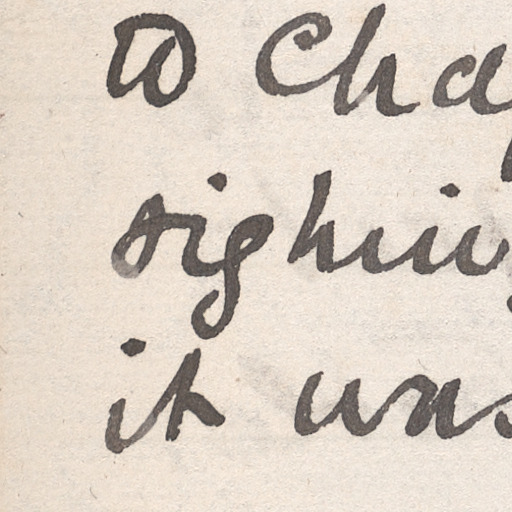 to Cha
sighin
it was